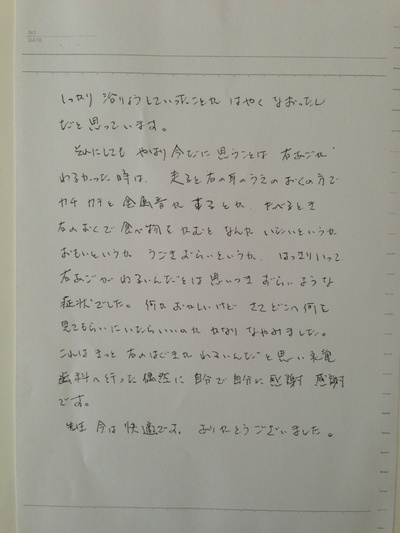 NO.
DATE
しっかり 治りょうしていったことが はやく なおったん
だと思っています。
それにしても やはり今だに思うことは 右あごが
わるかった時は、走ると右の耳のうえのおくの方で
カチカチと金属音が するとか、たべるとき
右のおくで食べ物をかむと なんか いたいというか
おもいというか うごきずらいというか、はっきりいって
右あごがわるいんだとは思いつきずらいような
症状でした。何かおかしいけど さてどこへ何を
見てもらいにいたらいいのか かなりなやみました。
これはきっと 右の はぐきが わるいんだと思い
歯科へ行った偶然に 自分で自分に感謝 感謝
です。
先生 今は 快適です。ありがとうございました。